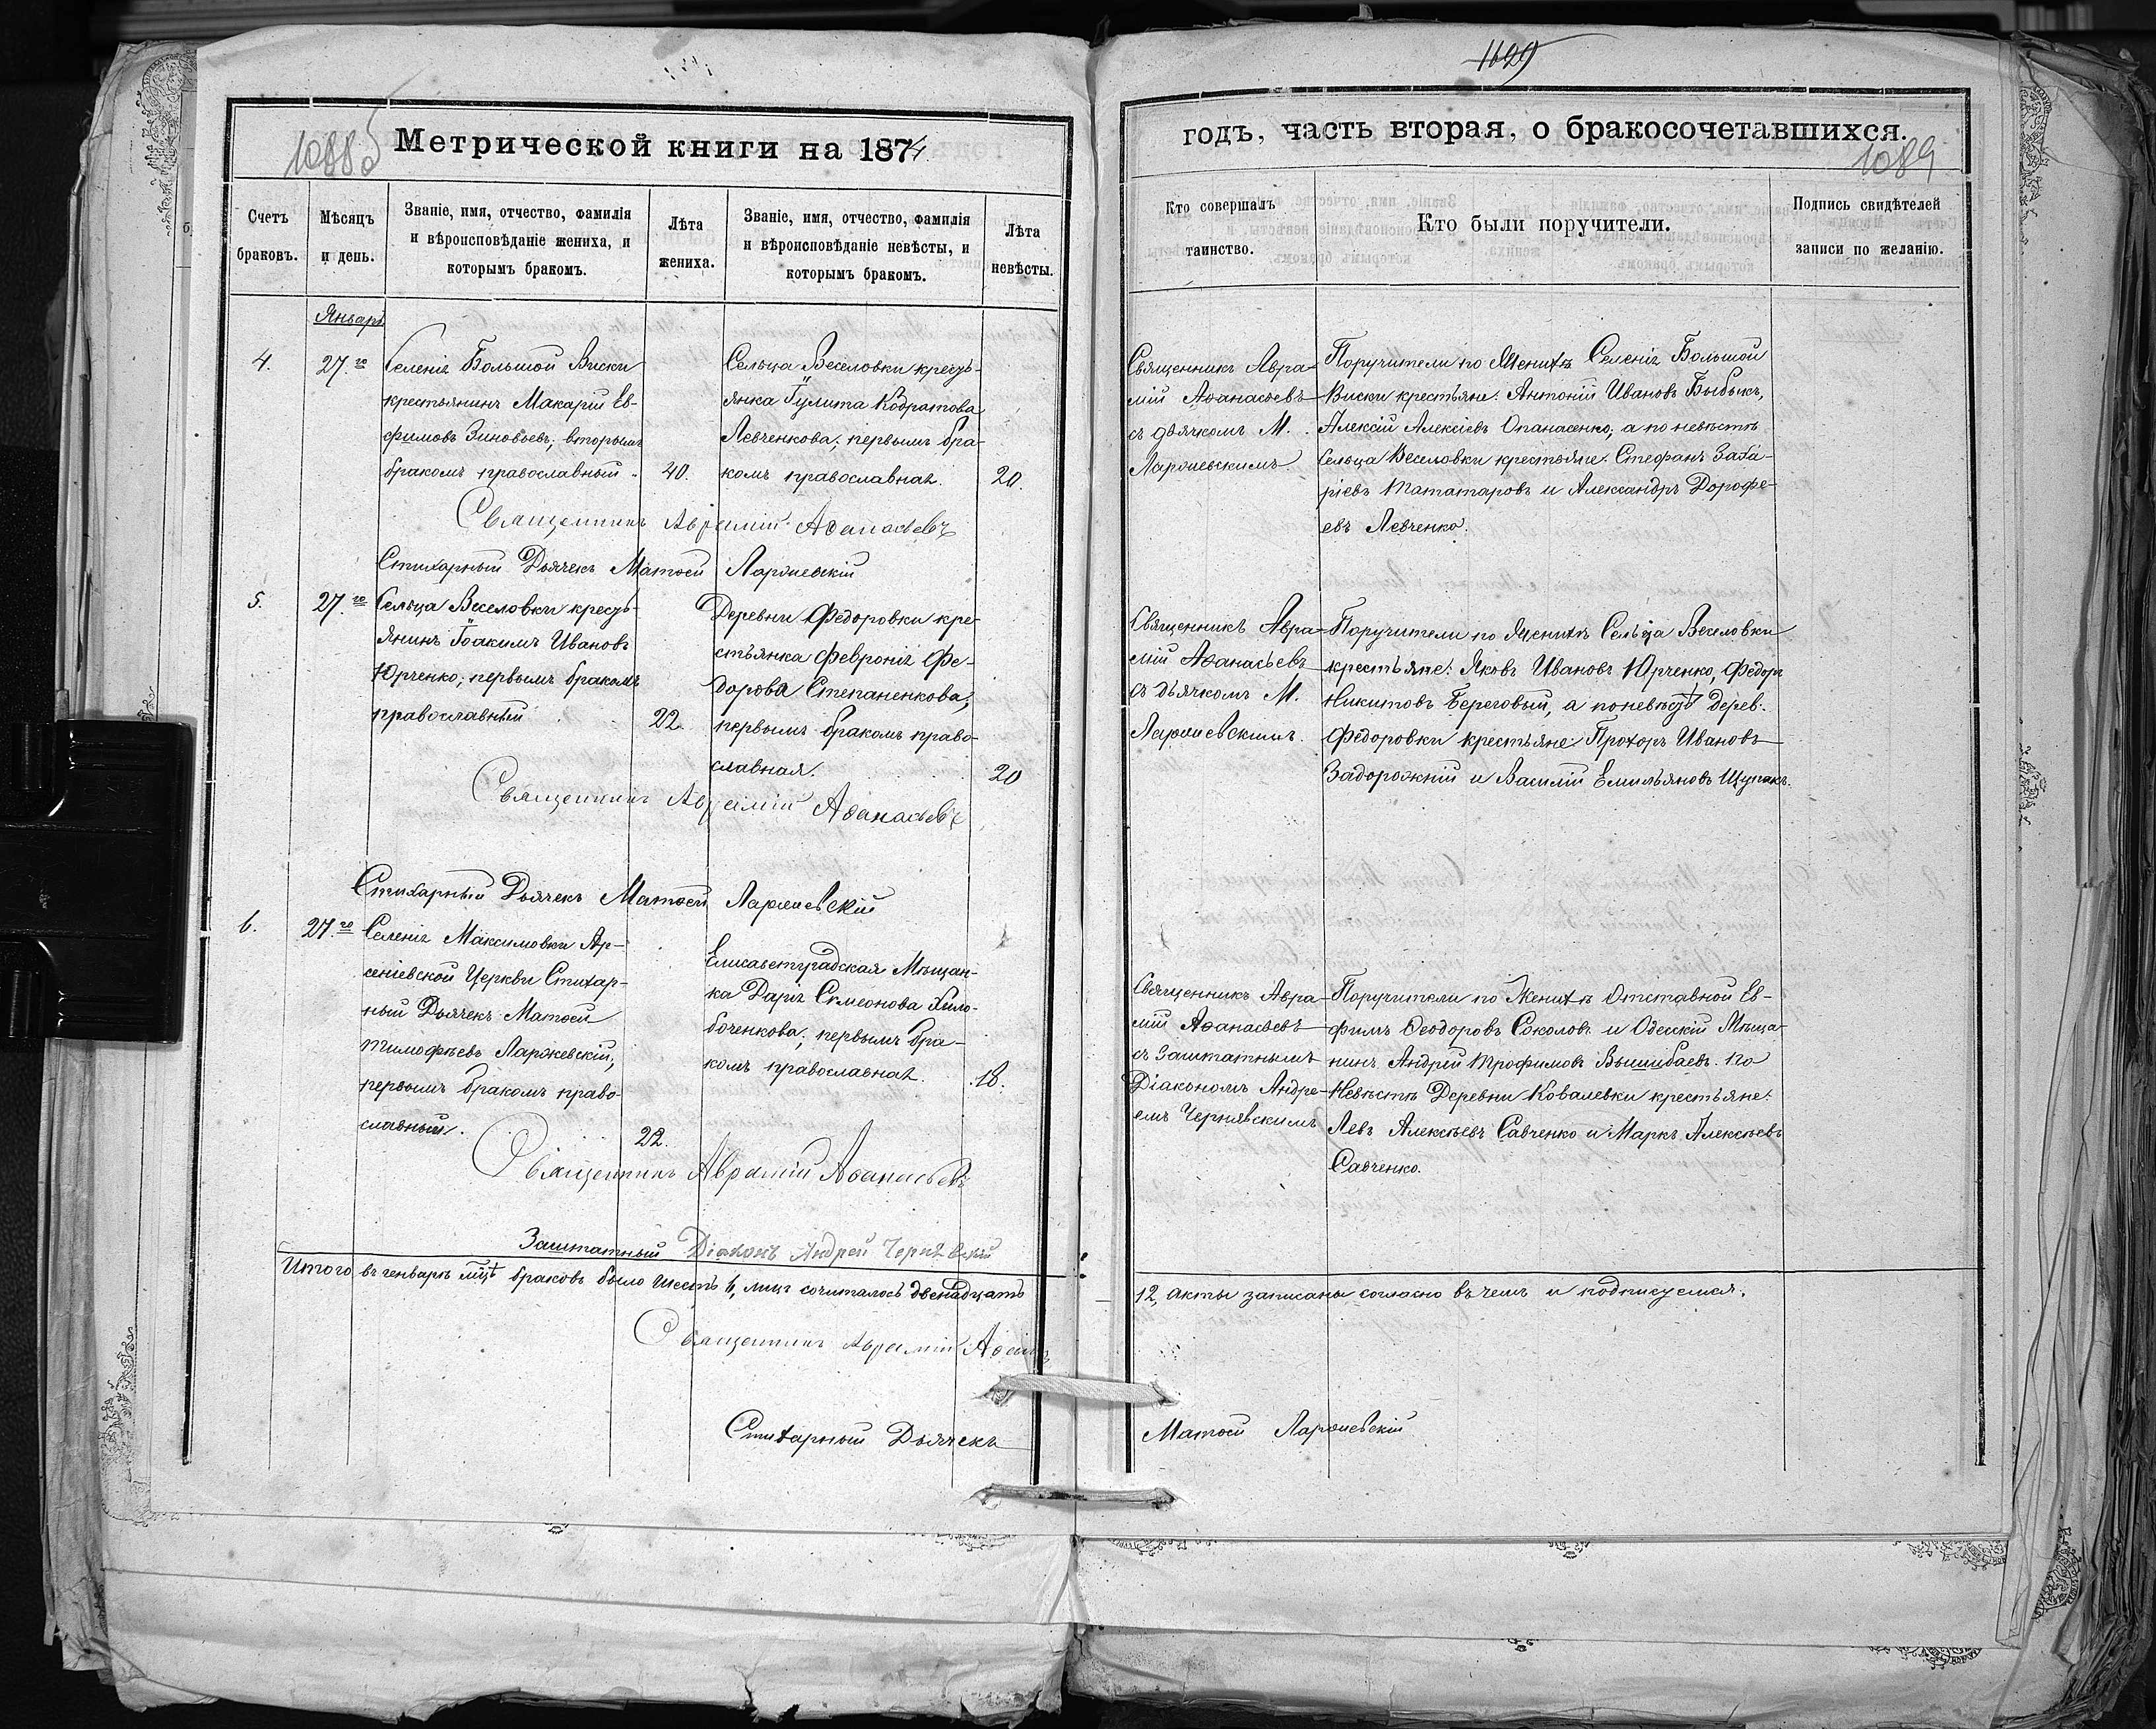 1629
10885
Метрической книги на 1874
годъ, часть вторая, о бракосочетавшихся.
1089
Счетъ
браковъ.
Мѣсяцъ
и день.
Званіе, имя, отчество, фамилія
и вѣроисповѣданіе жениха, и
которымъ бракомъ.
Лѣта
жениха.
Званіе, имя, отчество, фамилія
и вѣроисповѣданіе невѣсты, и
которымъ бракомъ.
Лѣта
невѣсты.
Кто совершалъ
таинство.
Кто были поручители.
Подпись свидѣтелей
записи по желанію.
Январь
4.
27.го
Селенія Большой Виски
крестьянинъ Макарій Ев-
фимовъ Зиновьевъ, вторымъ
бракомъ православный.
40.
Сельца Веселовки кресть-
янка Іулита Кодратова
Левченкова, первымъ бра-
комъ православная.
20.
Священникъ Авра-
мій Аѳанасьевъ
съ дьячкомъ М.
Ларжевскимъ
Поручители по Женихѣ Селенія Большой
Виски крестьяне: Антоній Ивановъ Быбыкъ,
Алексій Алексіевъ Опанасенко; а по невѣстѣ
Сельца Веселовки крестьяне: Стефанъ Заха-
ріевъ Мататаровъ и Александръ Дорофе-
евъ Левченко.
Священникъ Аврамій Аѳанасьевъ
Стихарный Дьячекъ Матѳей Ларжевскій
5.
27.го
Сельца Веселовки кресть-
янинъ Іоакимъ Ивановъ
Юрченко; первымъ бракомъ
православный
22.
Деревни Федоровки кре-
стьянка Февронія Фе-
дорова Степаненкова,
первымъ бракомъ право-
славная.
20
Священникъ Авра-
мій Аѳанасьевъ
съ дьячкомъ М.
Ларжевскимъ.
Поручители по Женихѣ Сельца Веселовки
крестьяне: Яковъ Ивановъ Юрченко, Федоръ
Никитовъ Береговый, а по невѣстѣ Дерев.
Федоровки крестьяне: Прохоръ Ивановъ
Задорожній и Василій Емильяновъ Щупакъ.
Священникъ Аврамій Аѳанасьевъ
Стихарный Дьячекъ Матѳей Ларжевскій
6.
27.го
Селенія Максимовки Ар-
сеніевской Церкви Стихар-
ный Дьячекъ Матѳей
Тимофѣевъ Ларжевскій,
первымъ бракомъ право-
славный.
22.
Елисаветградская Мѣщан-
ка Дарія Симеонова Хило-
боченкова; первымъ бра-
комъ православная.
18.
Священникъ Авра-
мій Аѳанасьевъ
съ Заштатнымъ
Діакономъ Андре-
емъ Чернявскимъ
Поручители по Женихѣ Отставной Ев-
фимъ Ѳеодоровъ Соколовъ и Одесскій Мѣща-
нинъ Андрей Трофимовъ Вышибаевъ. По
Невѣстѣ Деревни Ковалевки крестьяне:
Левъ Алексѣевъ Савченко и Маркъ Алексѣевъ
Савченко.
Священникъ Аврамій Аѳанасьевъ
Заштатный Діаконъ Андрей Чернявскій
Итого въ генварѣ мцѣ браковъ было шесть 6, лицъ сочиталось двенадцать
12, акты записаны согласно въ чемъ и подписуемся.
Священникъ Аврамій Аѳана
Стихарный Дьячекъ
Матѳей Ларжевскій